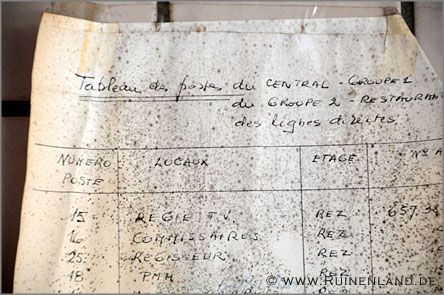 Tableau des postes du CENTRAL - GROUPE 1
du GROUPE 2 - RESTAURAN
des lignes directes
NUMERO POSTE LOCAUX ETAGE N° A
15 REGIE T.V. REZ 657.
16 COMMISSAIRES REZ
25 REGISSEUR REZ
18 PMH REZ
© WWW.RUINENLAND.DE